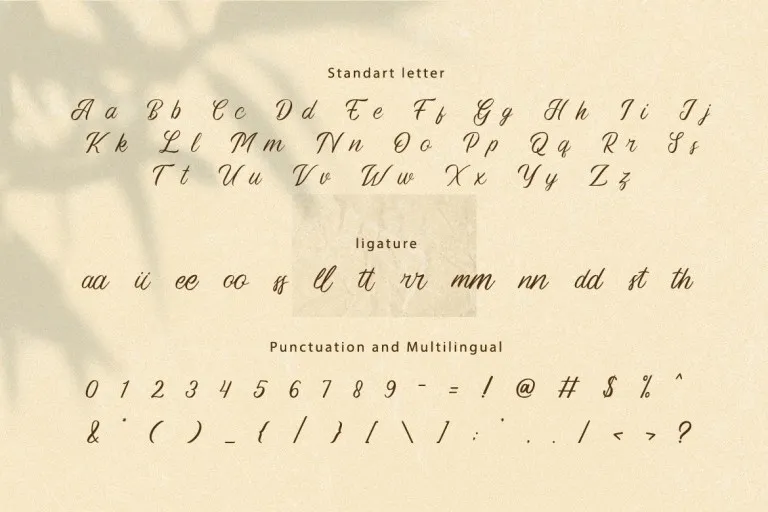 Standart letter
A a B b C c D d E e F f G g H h I i J j
K k L l M m N n O o P p Q q R r S s
T t U u V v W w X x Y y Z z
ligature
aa ii ee oo ss ll tt rr mm nn dd st th
Punctuation and Multilingual
0 1 2 3 4 5 6 7 8 9 - = ! @ # $ % ^
& * ( ) _ { / } [ \ ] : ' . . / < > ?